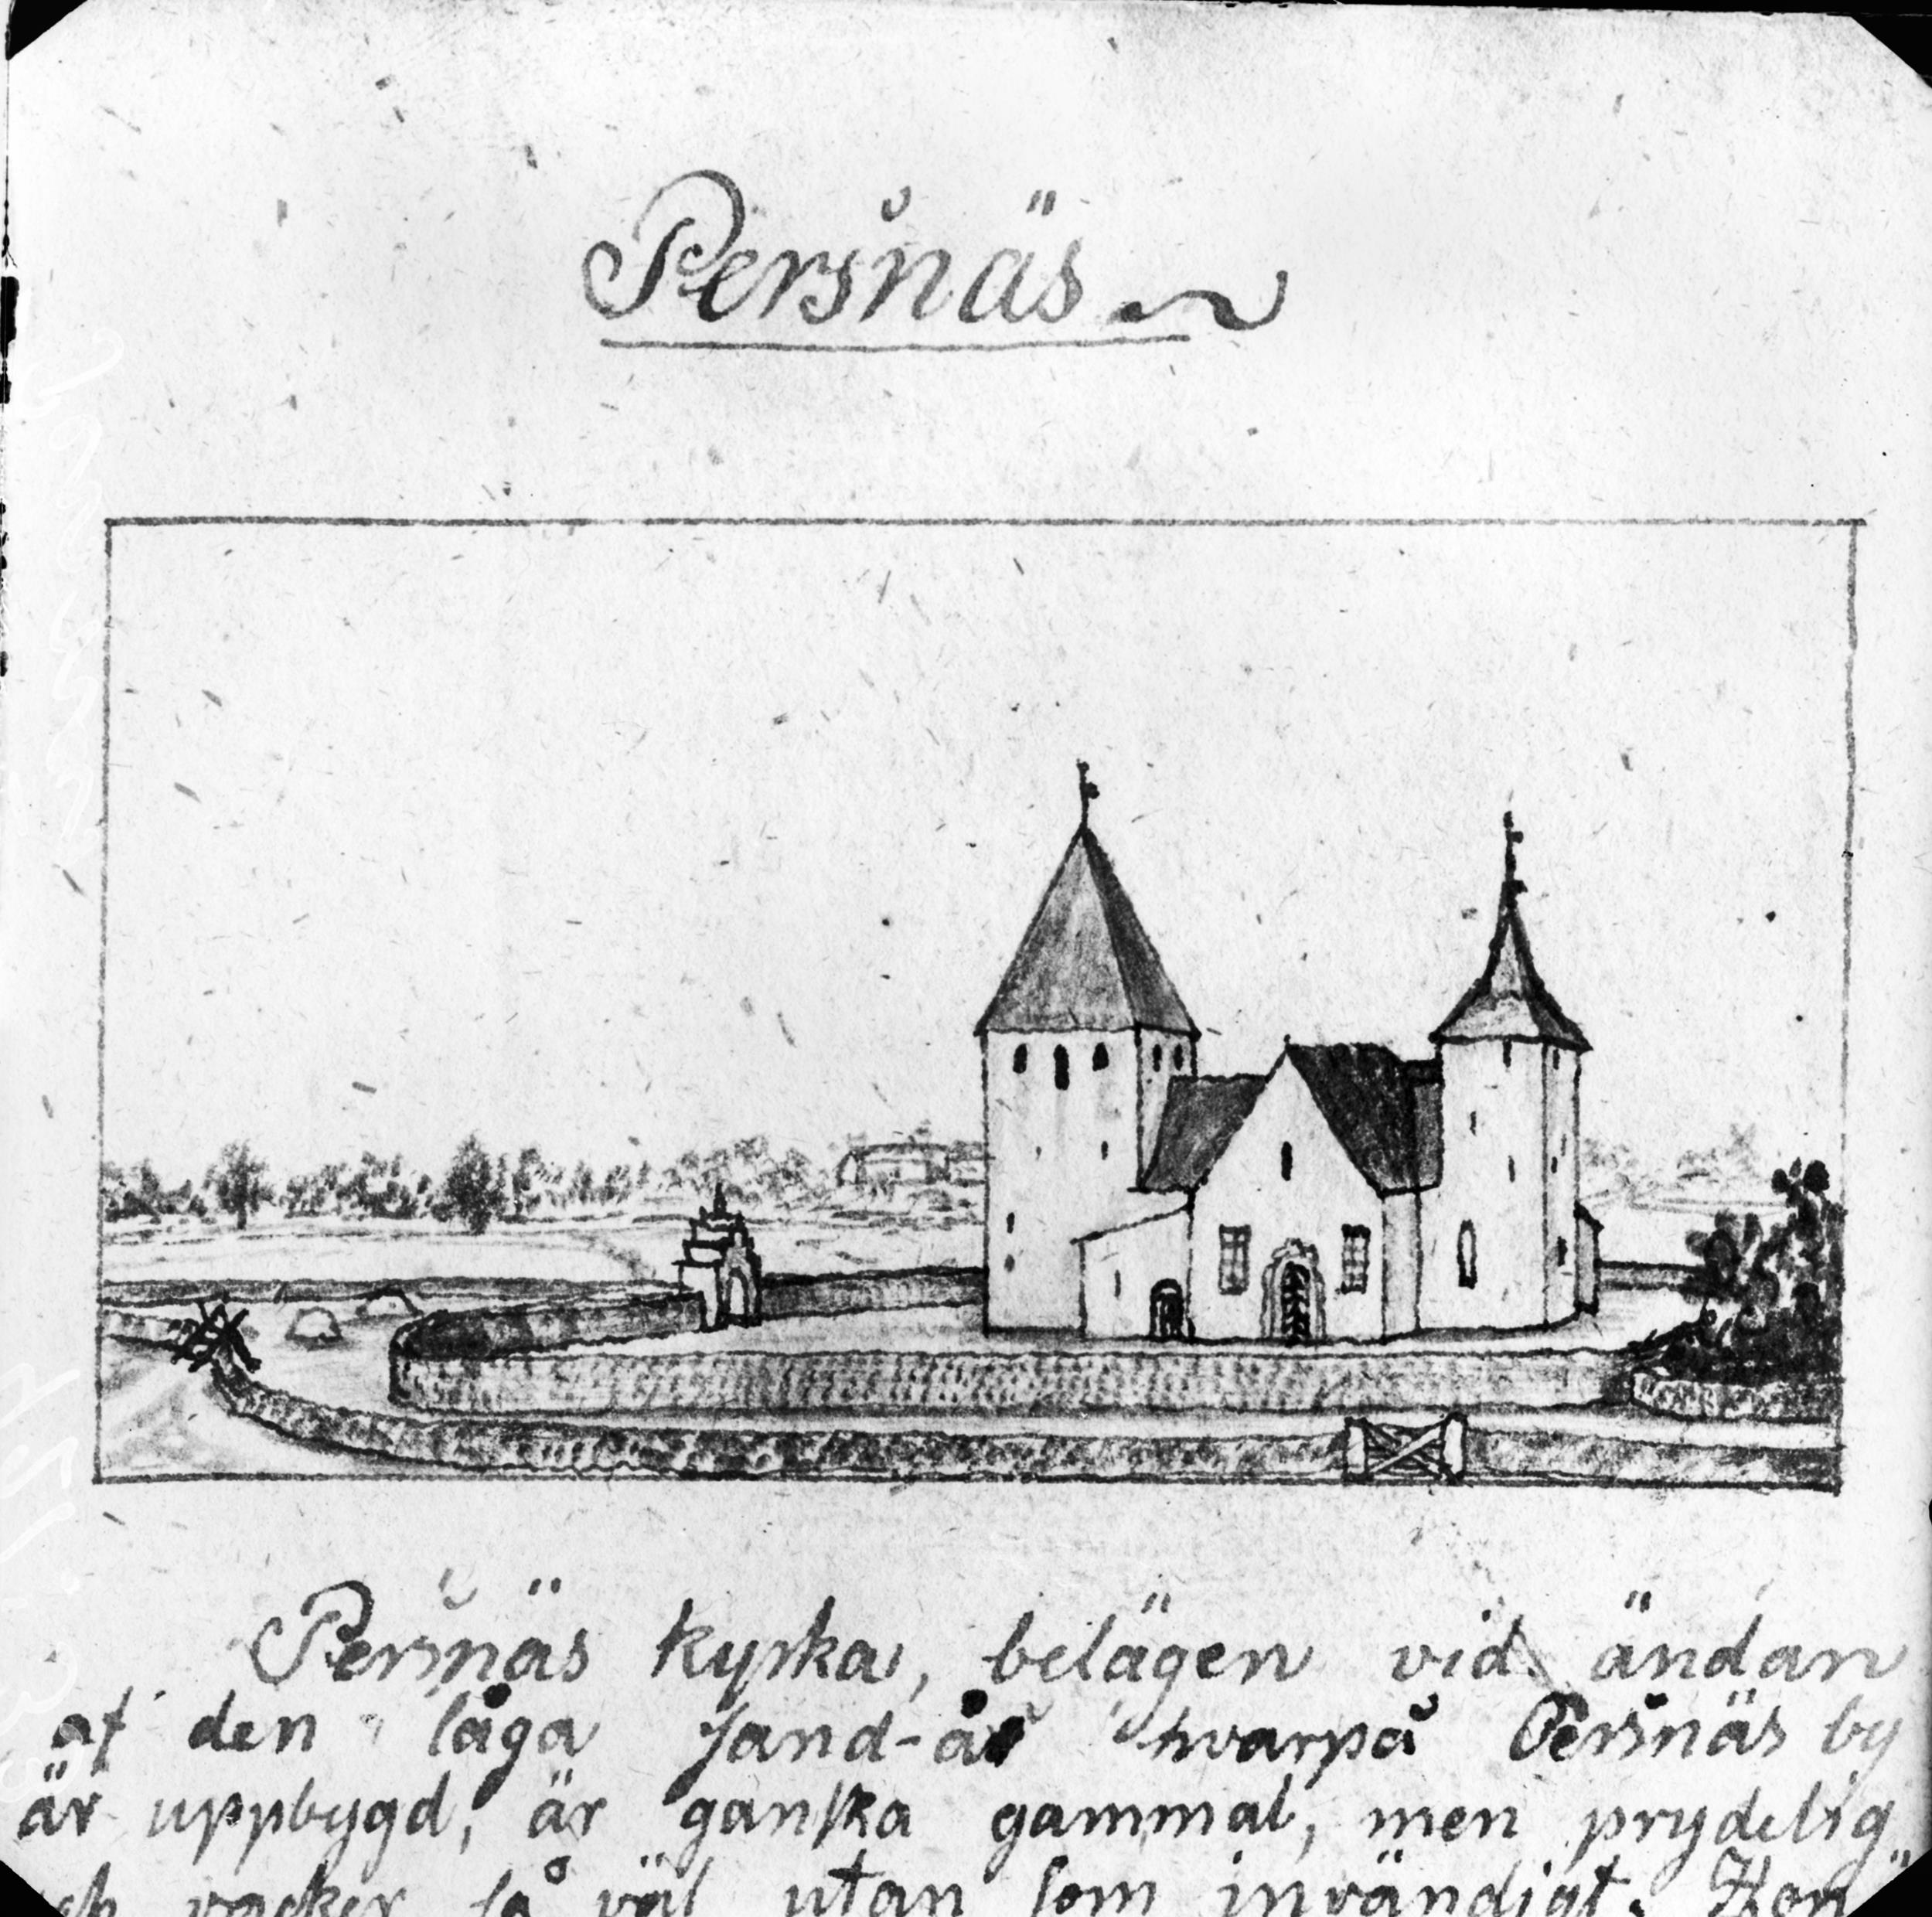 Persnäs
Persnäs kyrka, belägen vid ändan
af den låga sand-ås hvarpå Persnäs by
är uppbygd, är ganska gammal, men prydelig
och vacker så väl utan som invändigt. Hon